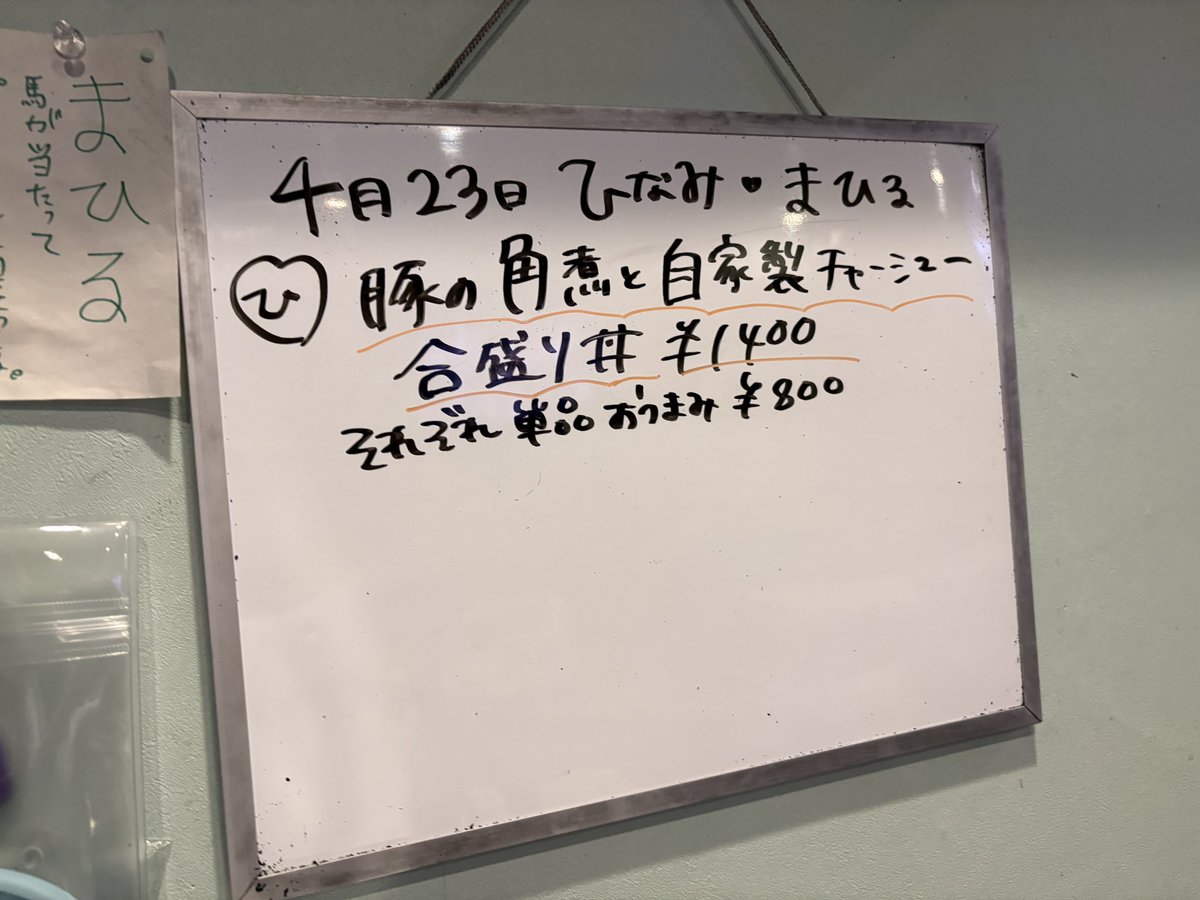 4月23日 ひなみ・まひる
ひ 豚の角煮と自家製チャーシュー
合盛り丼 ¥1400
それぞれ単品おつまみ ¥800
まひる
馬が当たって